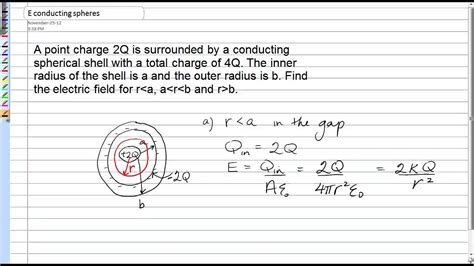 E conducting spheres
November-25-12
A point charge 2Q is surrounded by a conducting
spherical shell with a total charge of 4Q. The inner
radius of the shell is a and the outer radius is b. Find
the electric field for r<a, a<r<b and r>b.
a) r<a in the gap
Q_in = 2Q
E = Q_in / Aε₀ = 2Q / 4πr²ε₀ = 2kQ / r²
a
+2Q
r
-2Q
b